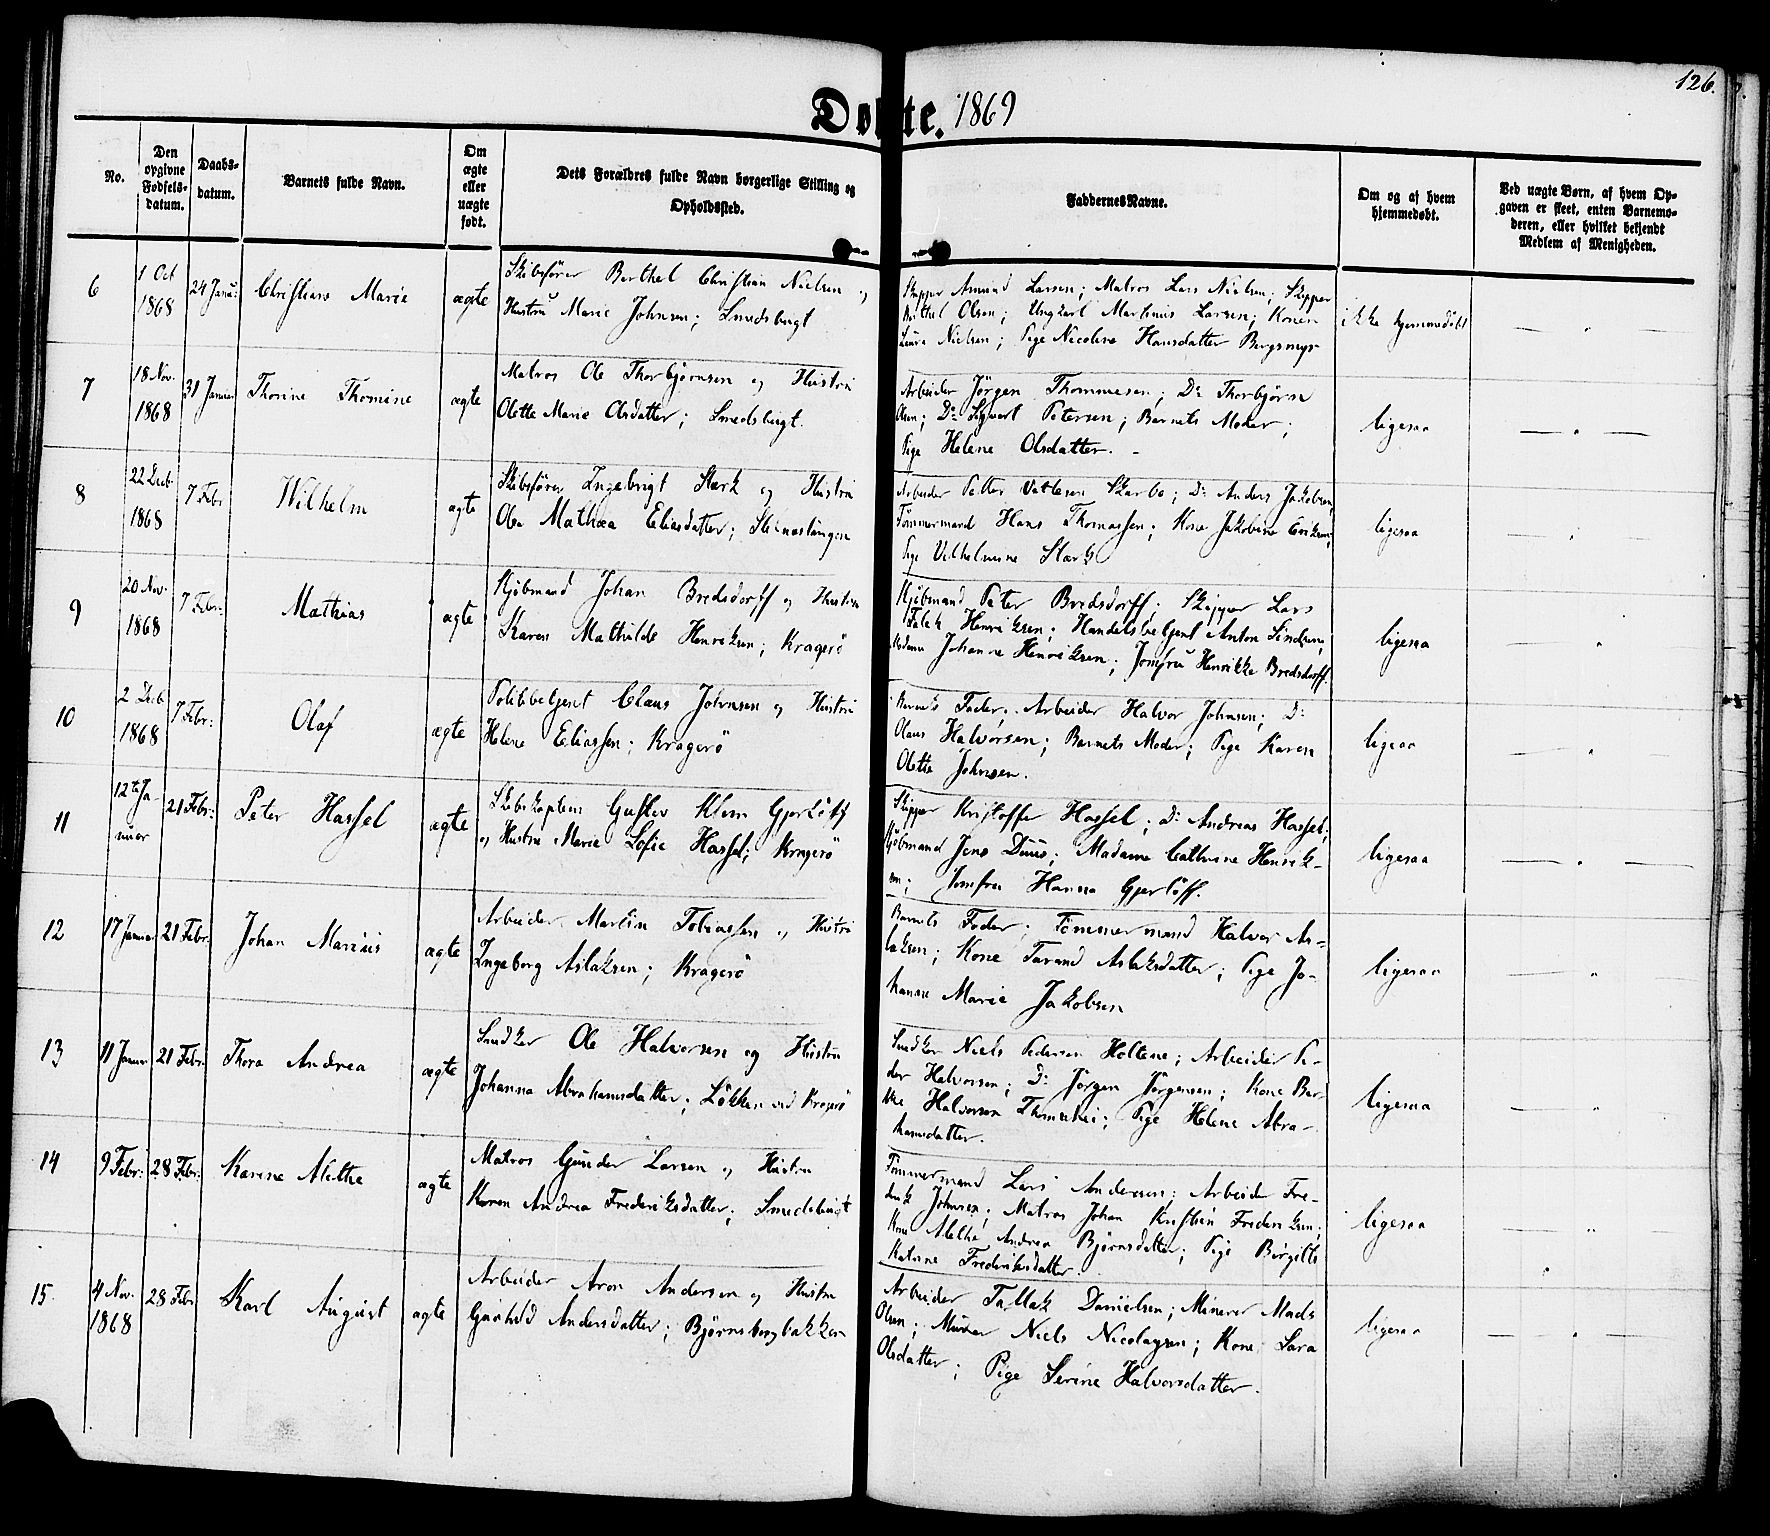 126.
Døbte. 1869
No.
Den opgivne Fødsels-datum.
Daabs-datum.
Barnets fulde Navn.
Om ægte eller uægte født.
Dets Forældres fulde Navn borgerlige Stilling og Opholdssted.
Faddernes Navne.
Om og af hvem hjemmedøbt.
Ved uægte Børn, af hvem Opgaven er skeet, enten Barnemoderen, eller hvilket bekjendt Medlem af Menigheden.
6
1 Oct 1868
24 Janu:
Christiane Marie
ægte
Skibsfører Berthel Christian Nielsen og
Hustru Marie Johnsen; Smedsbugt
Skipper Amund Larsen; Matros Lars Nielsen; Skipper
Berthel Olsen; Ungkarl Martinius Larsen; Konen
Laura Nielsen; Pige Nicoline Hansdatter Bergsmyr
ikke hjemmedøbt
7
18 Nov. 1868
31 Januar
Thorine Thomine
ægte
Matros Ole Thorbjørnsen og Hustru
Olette Marie Olsdatter; Smedsbugt.
Arbeider Jörgen Thommesen; Do Thorbjørn
Olsen; Do Sigvart Petersen; Barnets Moder;
Pige Helene Olsdatter. -
ligesaa
8
22 Decb 1868
7 Febr
Wilhelm
ægte
Skibsfører Ingebrigt Stærk og Hustru
Olea Mathea Eliasdatter; Stilnestangen
Arbeider Petter Vettesen Skarbo; Do Anders Jakobsen,
Tömmermand Hans Thomassen; Kone Jakobine Eriksen;
Pige Vilhelmine Stærk
ligesaa
9
20 Nov. 1868
7 Febr:
Mathias
ægte
Kjøbmand Johan Bredsdorff og Hustru
Karen Mathilde Henriksen; Kragerö
Kjøbmand Peter Bredsdorff; Skipper Lars
Falck Henriksen; Handelsbetjent Anton Sindsen;
Madame Johanne Henriksen; Jomfru Henrikke Bredsdorff.
ligesaa
10
2 Decb 1868
7 Febr:
Olaf
ægte
Politibetjent Claus Johnsen og Hustru
Helene Eliassen; Kragerö
Barnets Fader; Arbeider Halvor Johnsen; Do
Olaus Halvorsen; Barnets Moder; Pige Karen
Olette Johnsen.
ligesaa
11
12te Januar
21 Febr:
Peter Hassel
ægte
Skibskaptein Gustav Klem Gjerlöff
og Hustru Marie Sofie Hassel; Kragerö
Skipper Kristoffer Hassel; Do Andreas Hassel;
Kjøbmand Jens Duus; Madame Cathrine Henrik-
sen; Jomfru Hanna Gjerlöff.
ligesaa
12
17 Januar
21 Febr.
Johan Marius
ægte
Arbeider Martin Tobiassen og Hustru
Ingeborg Aslaksen; Kragerö
Barnets Fader; Tömmermand Halvor As-
laksen; Kone Tarand Aslaksdatter; Pige Jo-
hanne Marie Jakobsen
ligesaa
13
11 Januar
21 Febr:
Thora Andrea
ægte
Snedker Ole Halvorsen og Hustru
Johanna Abrahamsdatter; Løkken ved Kragerö
Snedker Niels Pedersen Holtene; Arbeider Pe-
der Halvorsen; Do Jörgen Jörgensen; Kone Ber-
the Halvorsen; Pige Helene Abra-
hamsdatter.
ligesaa
14
9 Febr:
28 Febr:
Karine Alethe
ægte
Matros Gunder Larsen og Hustru
Karen Andrea Frederiksdatter; Smedsbugt
Tömmermand Lars Andersen; Arbeider Fre-
derik Johnsen; Matros Johan Kristian Frederiksen;
Kone Alethe Andrea Bjørnsdatter; Pige Birgitte
Katrine Frederiksdatter.
ligesaa
15.
4 Nov. 1868
28 Febr
Karl August
ægte
Arbeider Aron Andersen og Hustru
Gunhild Andersdatter; Bjørnsborgbakken
Arbeider Tallak Danielsen; Minerer Mads
Olsen; Murer Niels Nicolaysen; Kone Sara
Olsdatter; Pige Serine Halvorsdatter.
ligesaa